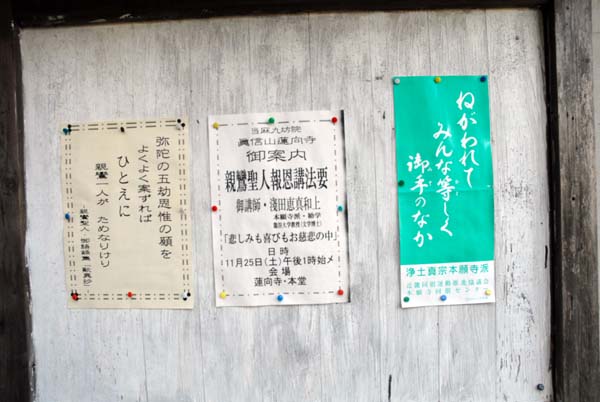 弥陀の五劫思惟の願を
よくよく案ずれば
ひとえに
親鸞一人が ためなりけり
当麻九坊院
眞信山蓮向寺
御案内
親鸞聖人報恩講法要
御講師・淺田恵真和上
本願寺派・勧学
龍谷大学教授(文学博士)
「悲しみも喜びもお慈悲の中」
日時
11月25日(土)午後1時始メ
会場
蓮向寺・本堂
ねがわれて
みんな等しく
御手のなか
浄土真宗本願寺派
近畿同朋運動推進協議会
本願寺同朋センター